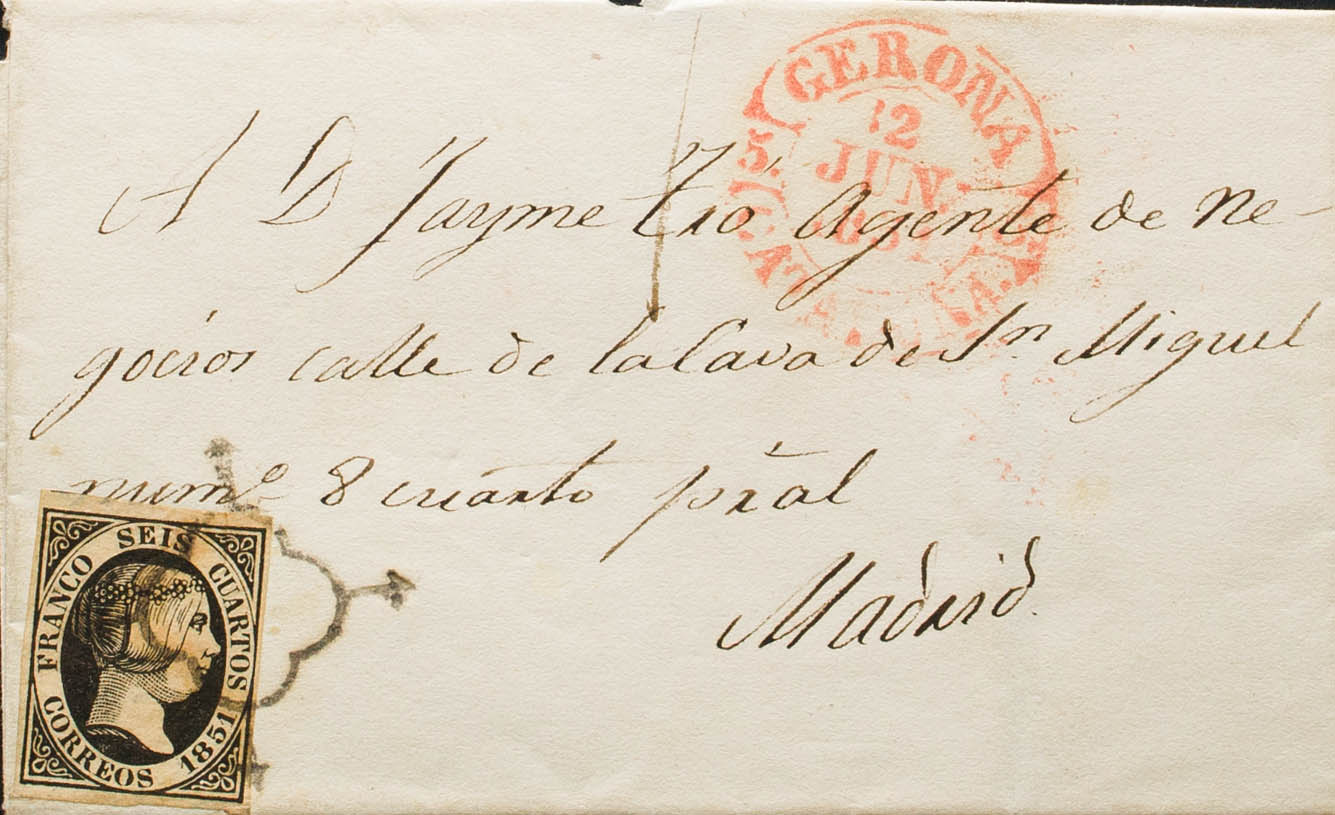 GERONA
12
JUN.
1851
CATALUÑA.
A D Jayme Tió Agente de ne-
gocios calle de la Cava de Sn Miguel
numo 8 cuarto pral
Madrid.
FRANCO SEIS CUARTOS
CORREOS 1851